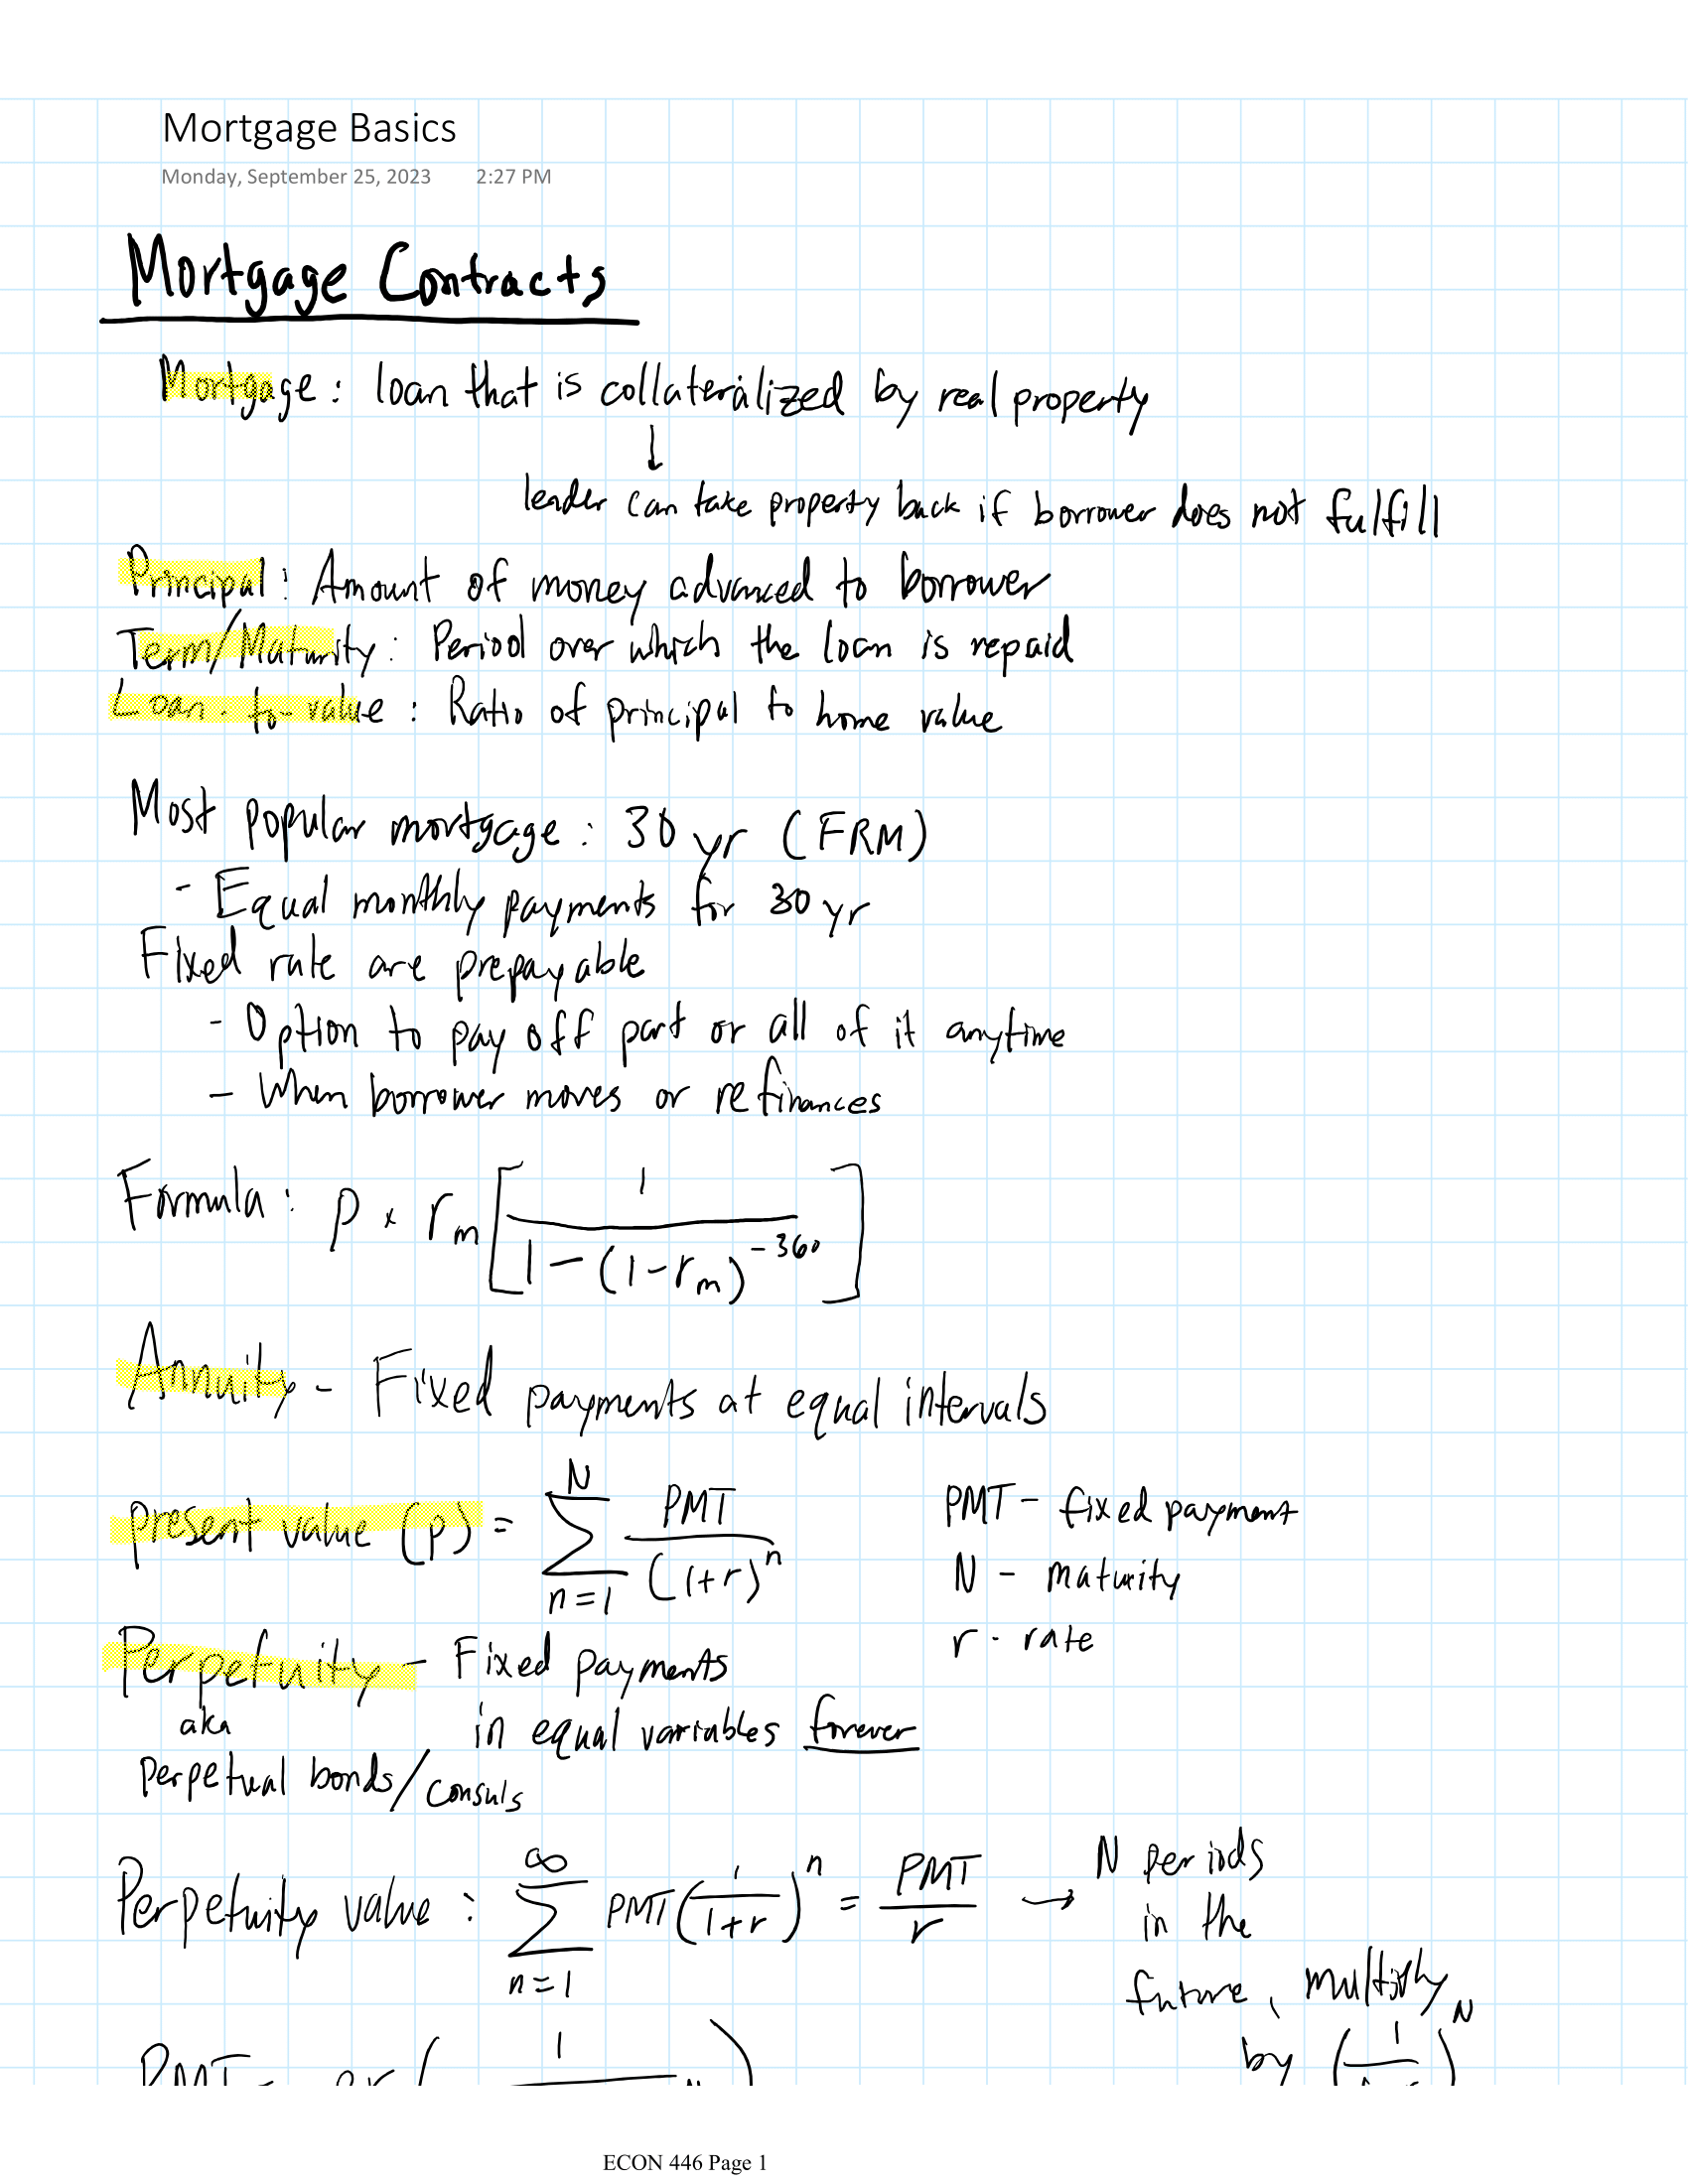 Mortgage Basics
Monday, September 25, 2023 2:27 PM
Mortgage Contracts
Mortgage: loan that is collateralized by real property
↓
leader can take property back if borrower does not fulfill
Principal: Amount of money advanced to borrower
Term/Maturity: Period over which the loan is repaid
Loan-to-value: Ratio of principal to home value
Most popular mortgage: 30 yr (FRM)
- Equal monthly payments for 30 yr
Fixed rate are prepayable
- Option to pay off part or all of it anytime
- When borrower moves or refinances
Formula: p × r_m [1 / (1-(1-r_m)^-360)]
Annuity - Fixed payments at equal intervals
present value (p) = ∑_{n=1}^{N} PMT/(1+r)^n
PMT - fixed payment
N - maturity
r - rate
Perpetuity - Fixed payments
in equal variables forever
aka
perpetual bonds/consuls
Perpetuity value: ∑_{n=1}^{∞} PMT(1/(1+r))^n = PMT/r → N periods
in the
future, multiply
by (1/ )^N
PMT = pr(1/ )
ECON 446 Page 1